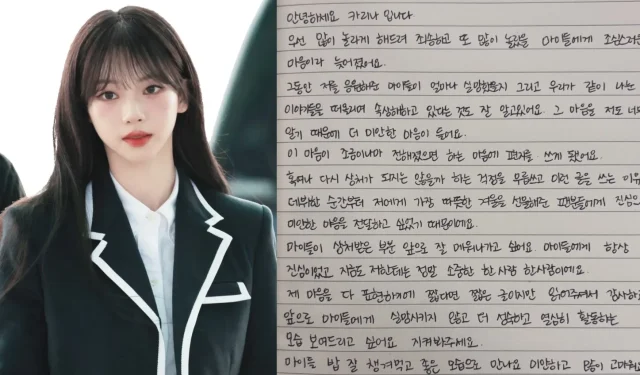 안녕하세요 카리나 입니다
우선 많이 놀라게 해드려 죄송하고 또 많이 놀랐을 마이들에게 조심스러운
마음이라 늦어졌어요.
그동안 저를 응원해준 마이들이 얼마나 실망했을지 그리고 우리가 같이 나눈
이야기들을 떠올리며 속상해하고 있다는것도 잘 알고있어요. 그 마음을 저도 너무
알기 때문에 더 미안한 마음이 들어요.
이 마음이 조금이나마 전해졌으면 하는 마음에 편지를 쓰게 됐어요.
혹여나 다시 상처가 되지는 않을까 하는 걱정을 무릅쓰고 이런 글을 쓰는 이유
데뷔한 순간부터 저에게 가장 따뜻한 겨울을 선물해준 팬분들에게 진심으
미안한 마음을 전달하고 싶었기 때문이에요.
마이들이 상처받은 부분 앞으로 잘 메워나가고 싶어요. 마이들에게 항상
진심이었고 지금도 저한테는 정말 소중한 한 사람 한사람이에요.
제 마음을 다 표현하기에 짧다면 짧은 글이지만 읽어주셔서 감사하고
앞으로 마이들에게 실망시키지 않고 더 성숙하고 열심히 활동하는
모습 보여드리고 싶어요 지켜봐주세요.
마이들 밥 잘 챙겨먹고 좋은 모습으로 만나요 미안하고 많이 고마워